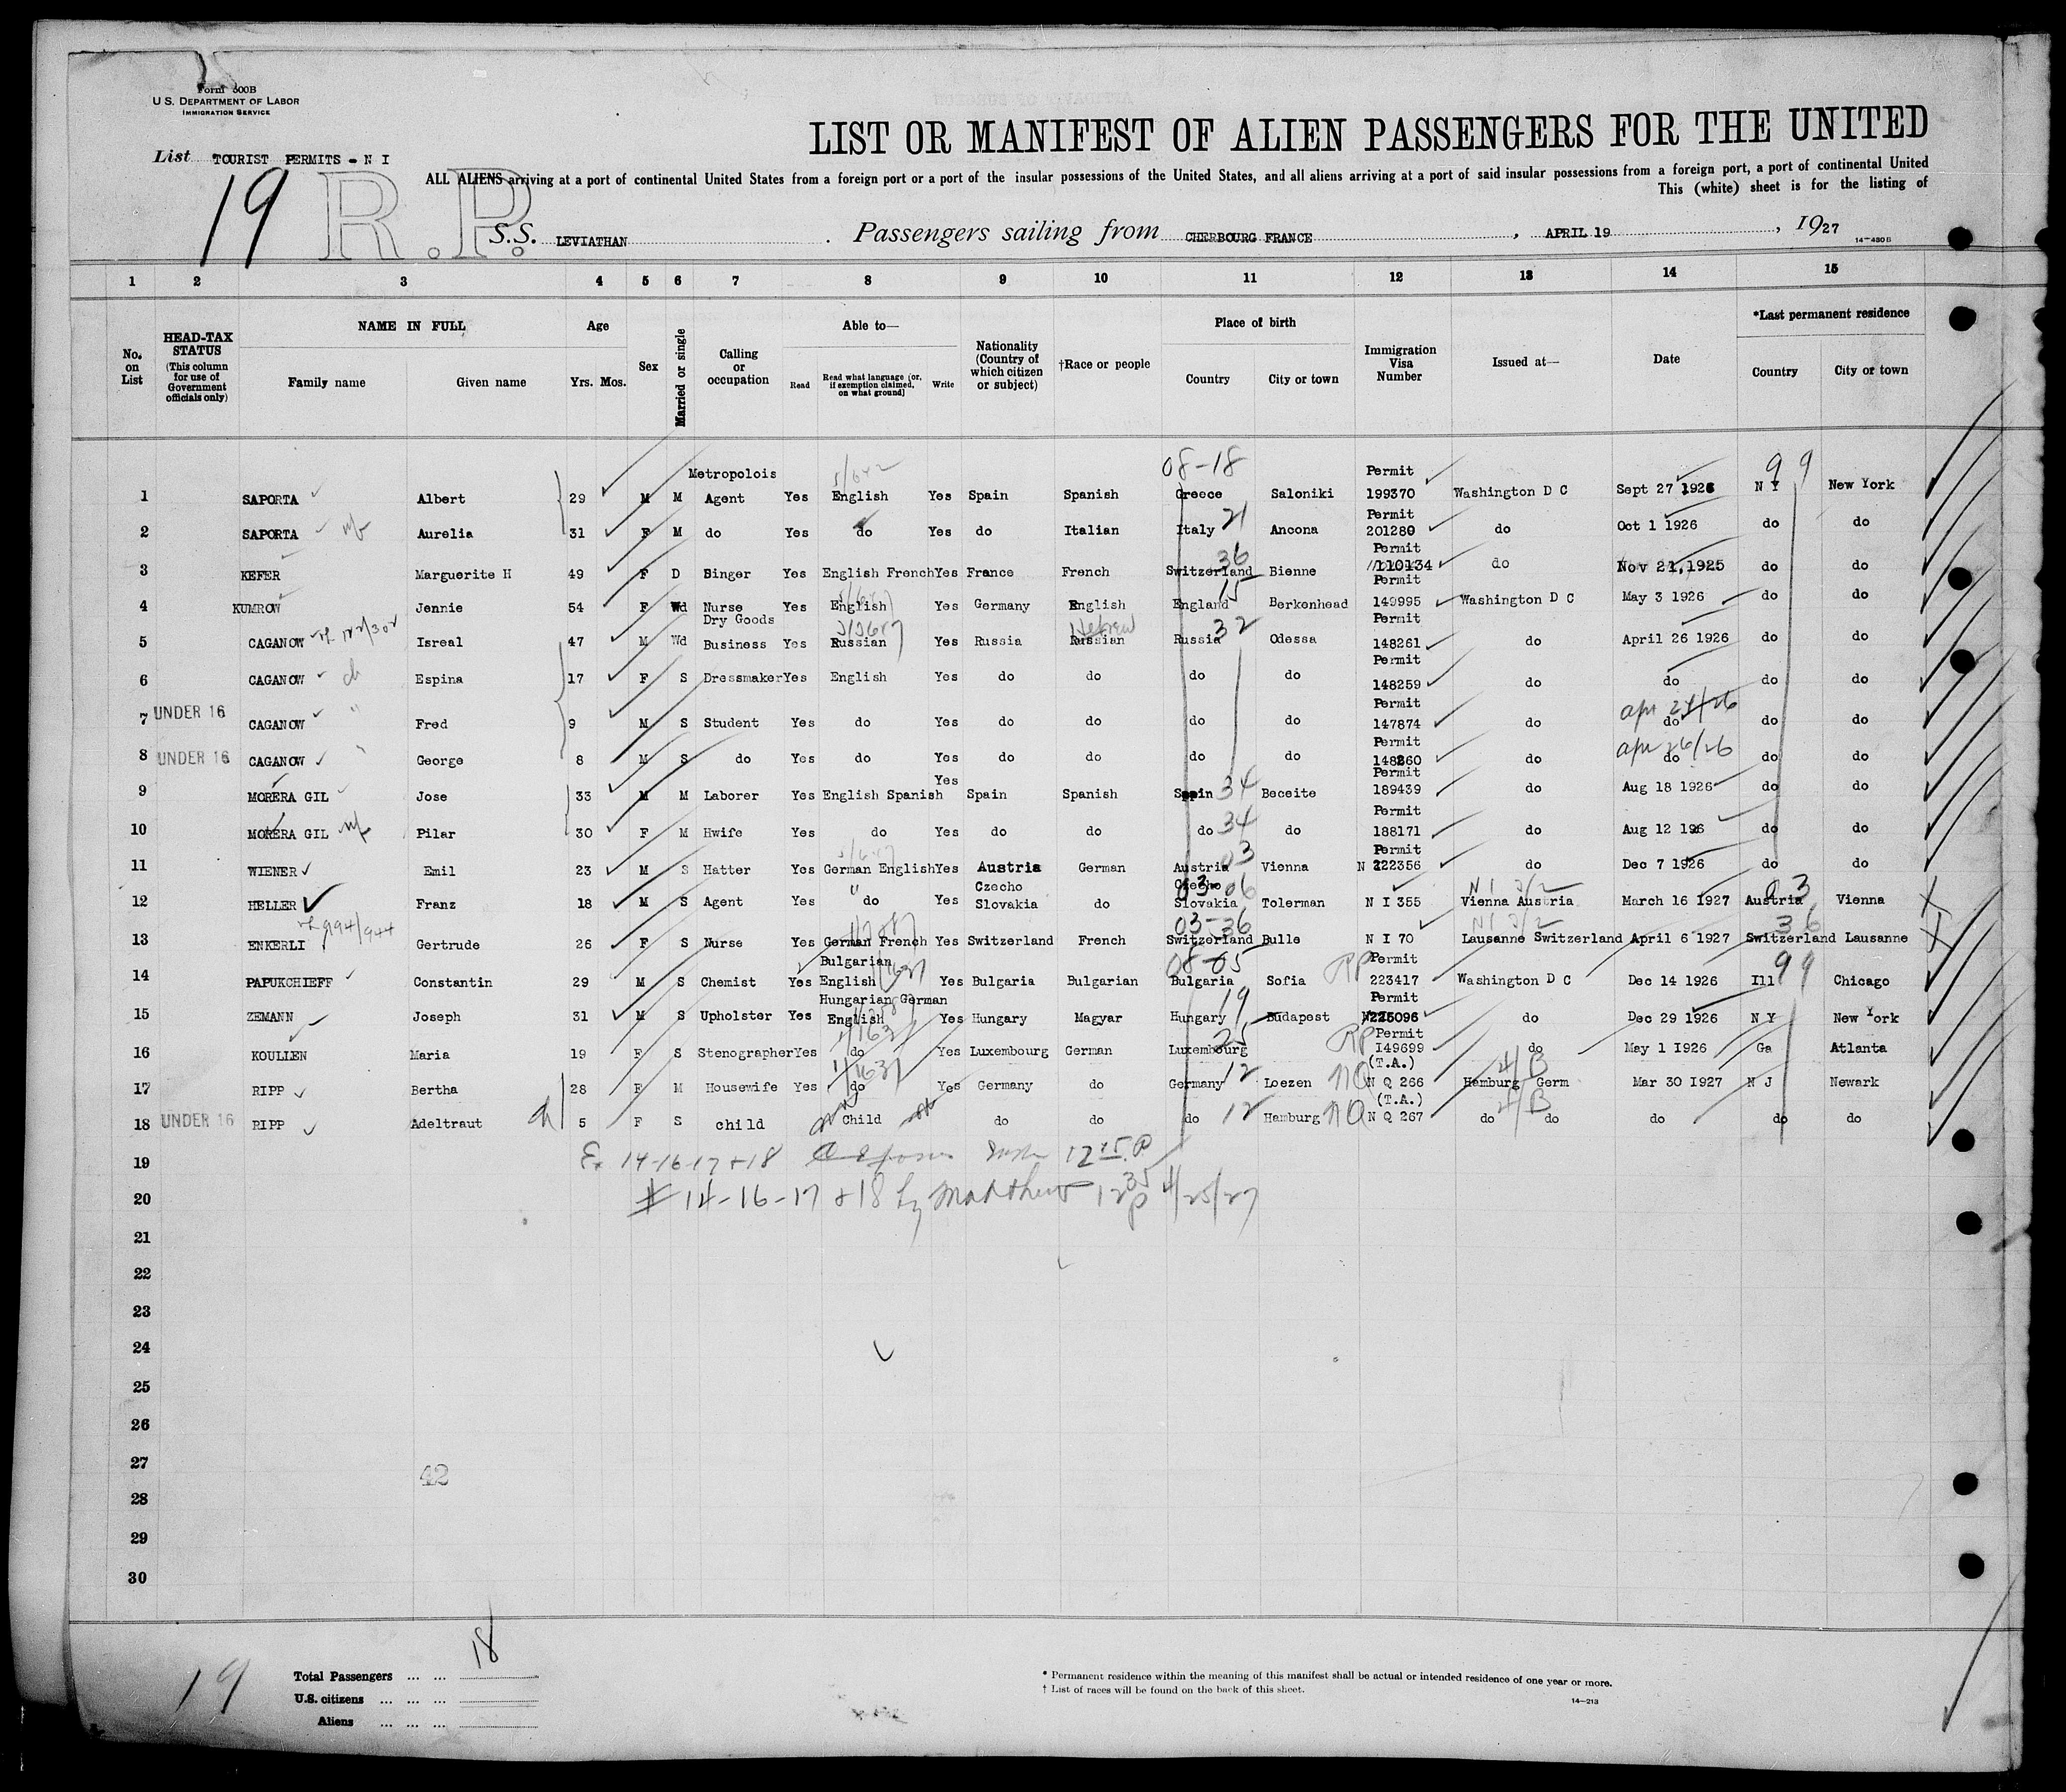 Form 500B
U. S. DEPARTMENT OF LABOR
IMMIGRATION SERVICE
LIST OR MANIFEST OF ALIEN PASSENGERS FOR THE UNITED
List TOURIST PERMITS - N I
19 R.P.
ALL ALIENS arriving at a port of continental United States from a foreign port or a port of the insular possessions of the United States, and all aliens arriving at a port of said insular possessions from a foreign port, a port of continental United
This (white) sheet is for the listing of
S.S. LEVIATHAN . Passengers sailing from CHERBOURG FRANCE , APRIL 19 , 1927
14-430B
1 2 3 4 5 6 7 8 9 10 11 12 13 14 15
No. on List
HEAD-TAX STATUS (This column for use of Government officials only)
NAME IN FULL Family name Given name
Age Yrs. Mos.
Sex
Married or single
Calling or occupation
Able to— Read Read what language (or, if exemption claimed, on what ground) Write
Nationality (Country of which citizen or subject)
†Race or people
Place of birth Country City or town
Immigration Visa Number
Issued at—
Date
*Last permanent residence Country City or town
Metropolois 08-18 Permit 99
1 SAPORTA Albert 29 M M Agent Yes English Yes Spain Spanish Greece Saloniki 199370 Washington D C Sept 27 1926 N Y New York
Permit
2 SAPORTA Aurelia 31 F M do Yes do Yes do Italian Italy 21 Ancona 201280 do Oct 1 1926 do do
36 Permit
3 KEFER Marguerite H 49 F D Singer Yes English French Yes France French Switzerland Bienne 110134 do Nov 21, 1925 do do
15 Permit
4 KUMROW Jennie 54 F Wd Nurse Yes English Yes Germany English England Berkenhead 149995 Washington D C May 3 1926 do do
Dry Goods Hebrew Permit
5 CAGANOW Isreal 47 M Wd Business Yes Russian Yes Russia Russian Russia 32 Odessa 148261 do April 26 1926 do do
Permit
6 CAGANOW ch Espina 17 F S Dressmaker Yes English Yes do do do do 148259 do do do do
UNDER 16 Permit apr 24/26
7 CAGANOW " Fred 9 M S Student Yes do Yes do do do do 147874 do do do do
Permit apr 26/26
8 UNDER 16 CAGANOW " George 8 M S do Yes do Yes do do do do 148260 do do do do
Yes Permit
9 MORERA GIL Jose 33 M M Laborer Yes English Spanish Spain Spanish Spain 34 Beceite 189439 do Aug 18 1926 do do
Permit
10 MORERA GIL Pilar 30 F M Hwife Yes do Yes do do do 34 do 188171 do Aug 12 196 do do
03 Permit
11 WIENER Emil 23 M S Hatter Yes German English Yes Austria German Austria Vienna N 222356 do Dec 7 1926 do do
Czecho Czecho 03-06 N I 3/2 03
12 HELLER Franz 18 M S Agent Yes do Yes Slovakia do Slovakia Tolerman N I 355 Vienna Austria March 16 1927 Austria Vienna
03-36 N I 3/2 36
13 ENKERLI Gertrude 26 F S Nurse Yes German French Yes Switzerland French Switzerland Bulle N I 70 Lausanne Switzerland April 6 1927 Switzerland Lausanne
Bulgarian 08-05 RP Permit 99
14 PAPUKCHIEFF Constantin 29 M S Chemist Yes English Yes Bulgaria Bulgarian Bulgaria Sofia 223417 Washington D C Dec 14 1926 Ill Chicago
Hungarian German 19 Permit
15 ZEMANN Joseph 31 M S Upholster Yes English Yes Hungary Magyar Hungary Budapest 225096 do Dec 29 1926 N Y New York
25 RP Permit
16 KOULLEN Maria 19 F S Stenographer Yes do Yes Luxembourg German Luxembourg I49699 do May 1 I926 Ga Atlanta
(T.A.) 4/B
17 RIPP Bertha 28 F M Housewife Yes do Yes Germany do Germany 12 Loezen NQ N Q 266 Hamburg Germ Mar 30 I927 N J Newark
(T.A.) 4/B
18 UNDER 16 RIPP Adeltraut ch 5 F S child Child do do do 12 Hamburg NQ N Q 267 do do do do do
19 Ex 14-16-17+18 12 15 P
20 # 14-16-17 + 18 by Matthews 12 35 p 4/25/27
21
22
23
24
25
26
27
42
28
29
30
18
19
Total Passengers ... ...
U.S. citizens ... ... ...
Aliens ... ... ...
* Permanent residence within the meaning of this manifest shall be actual or intended residence of one year or more.
† List of races will be found on the back of this sheet.
14-213